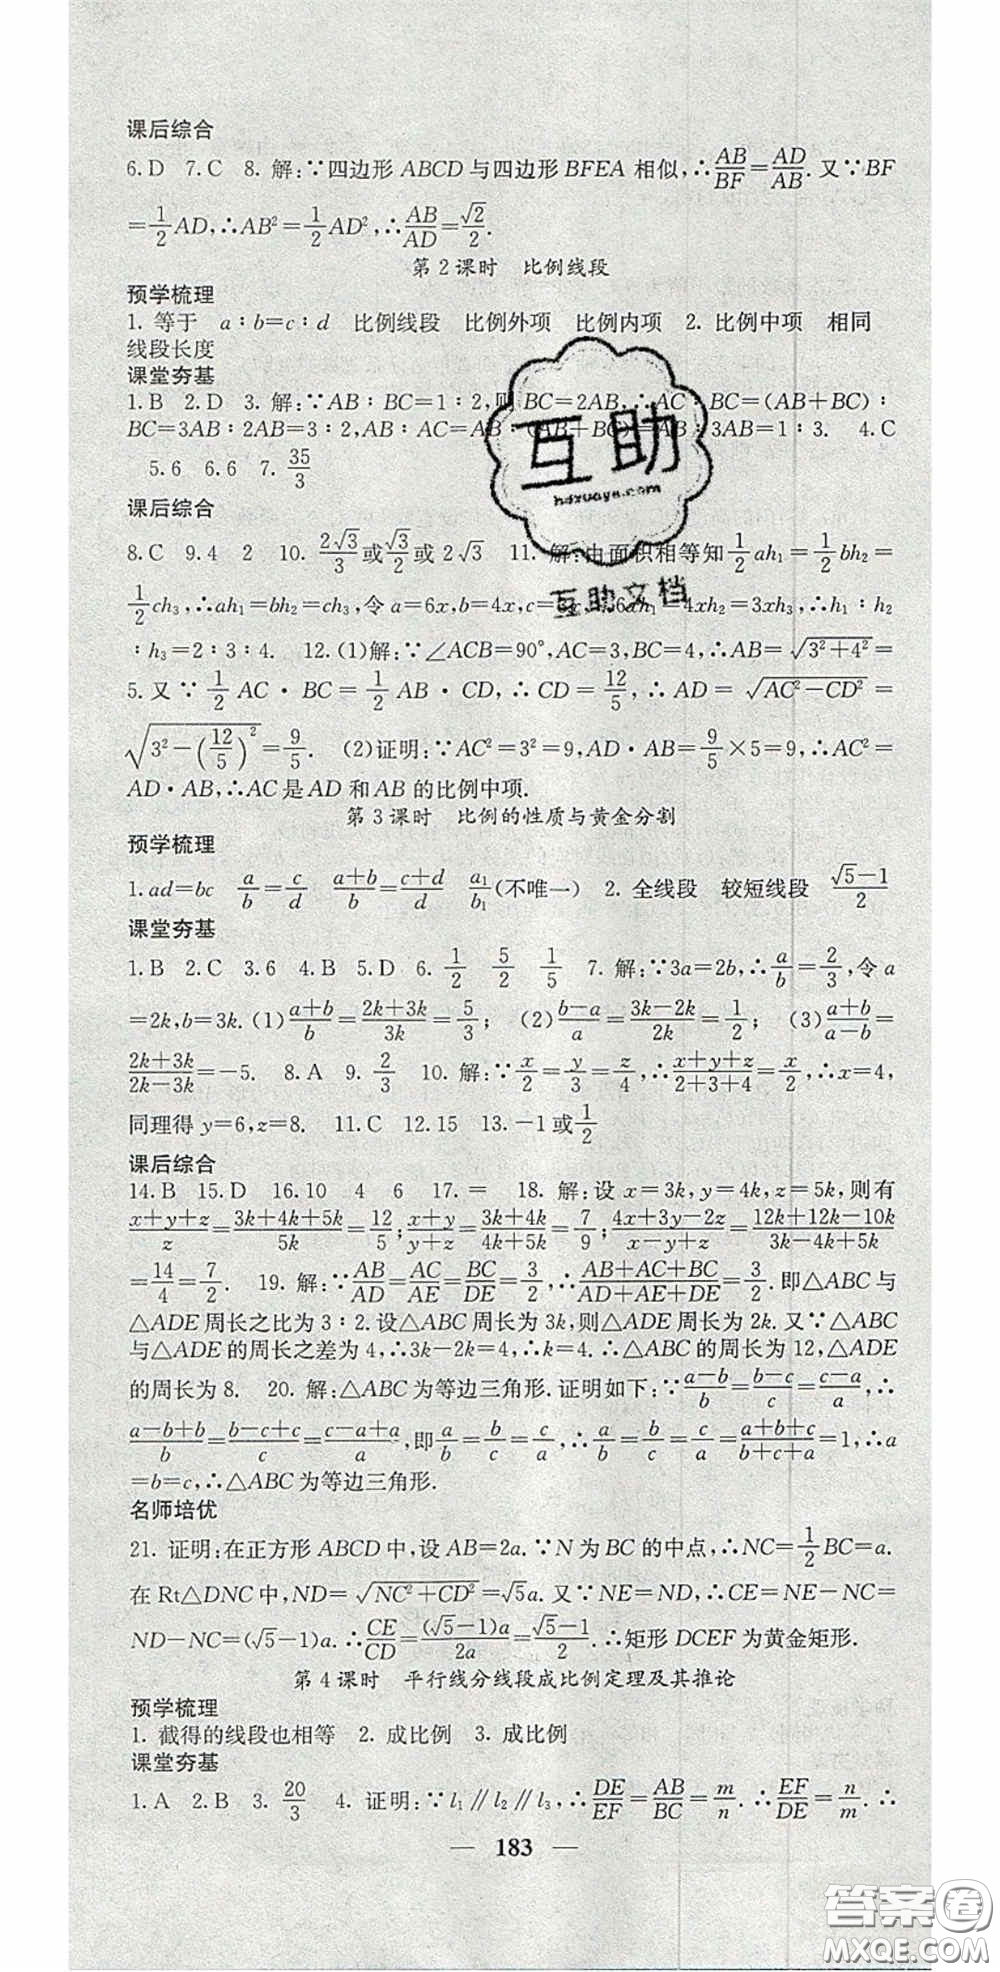 课后综合
6.D 7.C 8. 解:∵四边形 ABCD 与四边形 BFEA 相似,∴AB/BF=AD/AB. 又∵BF
=1/2AD,∴AB²=1/2AD²,∴AB/AD=√2/2.
第 2 课时 比例线段
预学梳理
1. 等于 a∶b=c∶d 比例线段 比例外项 比例内项 2. 比例中项 相同
线段长度
课堂夯基
1.B 2.D 3. 解:∵AB∶BC=1∶2,则 BC=2AB,∴AC∶BC=(AB+BC)∶
BC=3AB∶2AB=3∶2,AB∶AC=AB∶(AB+BC)=AB∶3AB=1∶3. 4.C
5.6 6.6 7. 35/3
课后综合
8.C 9.4 2 10. 2√3/3或√3/2或 2√3 11. 解:由面积相等知1/2ah₁=1/2bh₂=
1/2ch₃,∴ah₁=bh₂=ch₃,令 a=6x,b=4x,c=3x,∴6xh₁=4xh₂=3xh₃,∴h₁∶h₂
∶h₃=2∶3∶4. 12.(1)解:∵∠ACB=90°,AC=3,BC=4,∴AB=√(3²+4²)=
5. 又∵1/2 AC·BC=1/2 AB·CD,∴CD=12/5,∴AD=√(AC²-CD²)=
√(3²-(12/5)²)=9/5. (2)证明:∵AC²=3²=9,AD·AB=9/5×5=9,∴AC²=
AD·AB,∴AC 是 AD 和 AB 的比例中项.
第 3 课时 比例的性质与黄金分割
预学梳理
1. ad=bc a/b=c/d (a+b)/b=(c+d)/d a₁/b₁(不唯一) 2. 全线段 较短线段 (√5-1)/2
课堂夯基
1.B 2.C 3.6 4.B 5.D 6. 1/2 5/2 1/5 7. 解:∵3a=2b,∴a/b=2/3,令 a
=2k,b=3k.(1)(a+b)/b=(2k+3k)/3k=5/3; (2)(b-a)/a=(3k-2k)/2k=1/2; (3)(a+b)/(a-b)=
(2k+3k)/(2k-3k)=-5. 8.A 9. 2/3 10. 解:∵x/2=y/3=z/4,∴(x+y+z)/(2+3+4)=x/2,∴x=4,
同理得 y=6,z=8. 11.C 12.15 13.-1或1/2
课后综合
14.B 15.D 16.10 4 6 17.= 18. 解:设 x=3k,y=4k,z=5k,则有
(x+y+z)/z=(3k+4k+5k)/5k=12/5;(x+y)/(y+z)=(3k+4k)/(4k+5k)=7/9;(4x+3y-2z)/(x-y+z)=(12k+12k-10k)/(3k-4k+5k)
=14/4=7/2. 19. 解:∵AB/AD=AC/AE=BC/DE=3/2,∴(AB+AC+BC)/(AD+AE+DE)=3/2. 即△ABC 与
△ADE 周长之比为 3∶2. 设△ABC 周长为 3k,则△ADE 周长为 2k. 又∵△ABC
与△ADE 的周长之差为 4,∴3k-2k=4,∴k=4. ∴△ABC 的周长为 12,△ADE
的周长为 8. 20. 解:△ABC 为等边三角形. 证明如下:∵(a-b)/b=(b-c)/c=(c-a)/a,∴
(a-b+b)/b=(b-c+c)/c=(c-a+a)/a,即a/b=b/c=c/a,∴a/b=b/c=c/a=(a+b+c)/(b+c+a)=1,∴a
=b=c,∴△ABC 为等边三角形.
名师培优
21. 证明:在正方形 ABCD 中,设 AB=2a. ∵N 为 BC 的中点,∴NC=1/2BC=a.
在 Rt△DNC 中,ND=√(NC²+CD²)=√5a. 又∵NE=ND,∴CE=NE-NC=
ND-NC=(√5-1)a. ∴CE/CD=(√5-1)a/2a=(√5-1)/2. ∴矩形 DCEF 为黄金矩形.
第 4 课时 平行线分线段成比例定理及其推论
预学梳理
1. 截得的线段也相等 2. 成比例 3. 成比例
课堂夯基
1.A 2.B 3. 20/3 4. 证明:∵l₁∥l₂∥l₃,∴DE/EF=AB/BC=m/n. ∴EF/DE=n/m. ∴
— 183 —
互助
hdzuoye.com
互助文档
答案圈
MXQE.COM